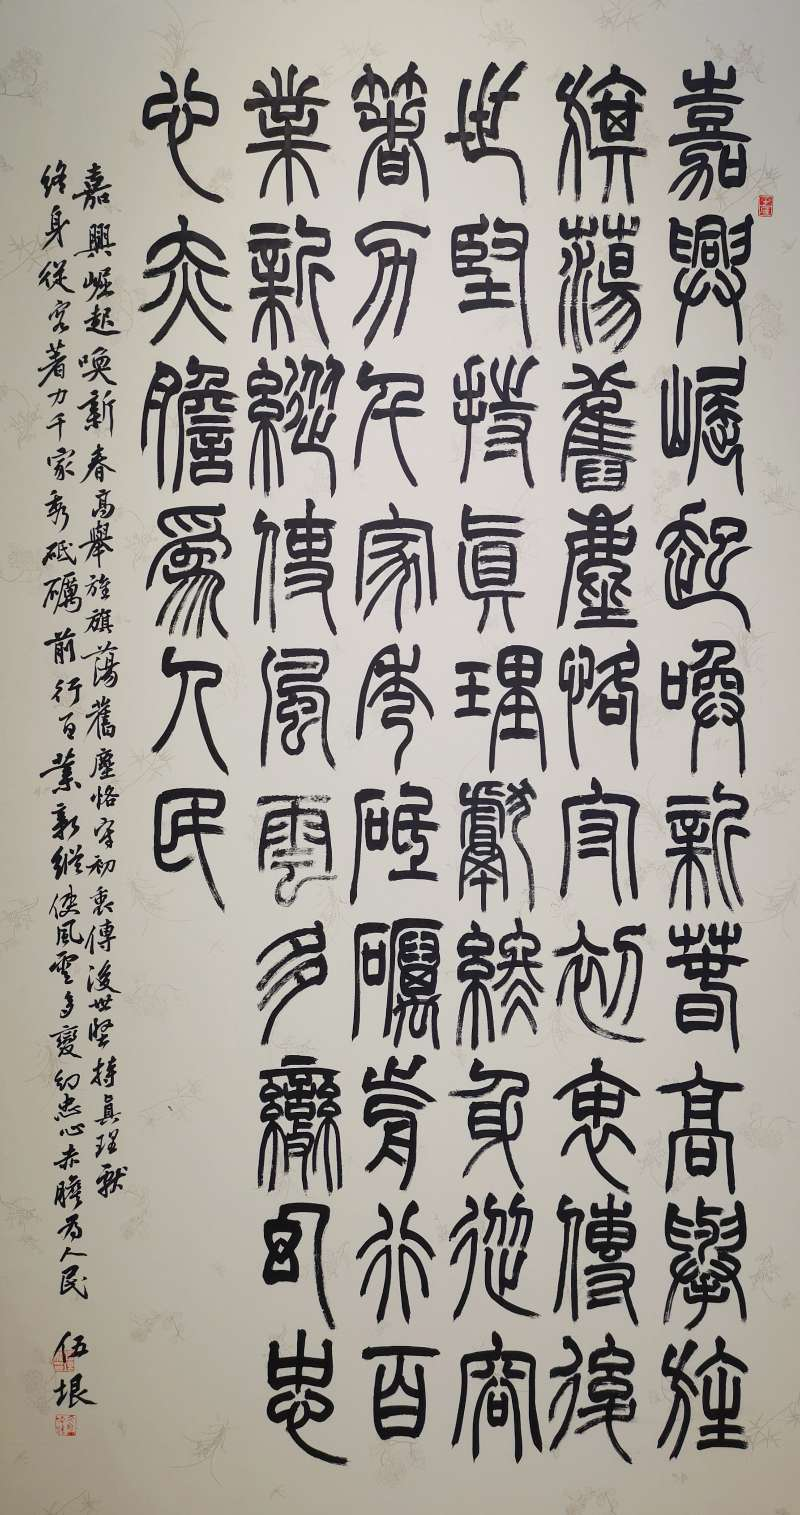 嘉興崛起喚新春高舉旌
旗蕩舊塵恪守初衷傳後
世堅持真理獻終身從容
著力千家秀砥礪前行百
業新縱使風雲多變幻忠
心赤膽為人民
嘉興崛起喚新春高舉旌旗蕩舊塵恪守初衷傳後世堅持真理獻
終身從容著力千家秀砥礪前行百業新縱使風雲多變幻忠心赤膽為人民
伍垠